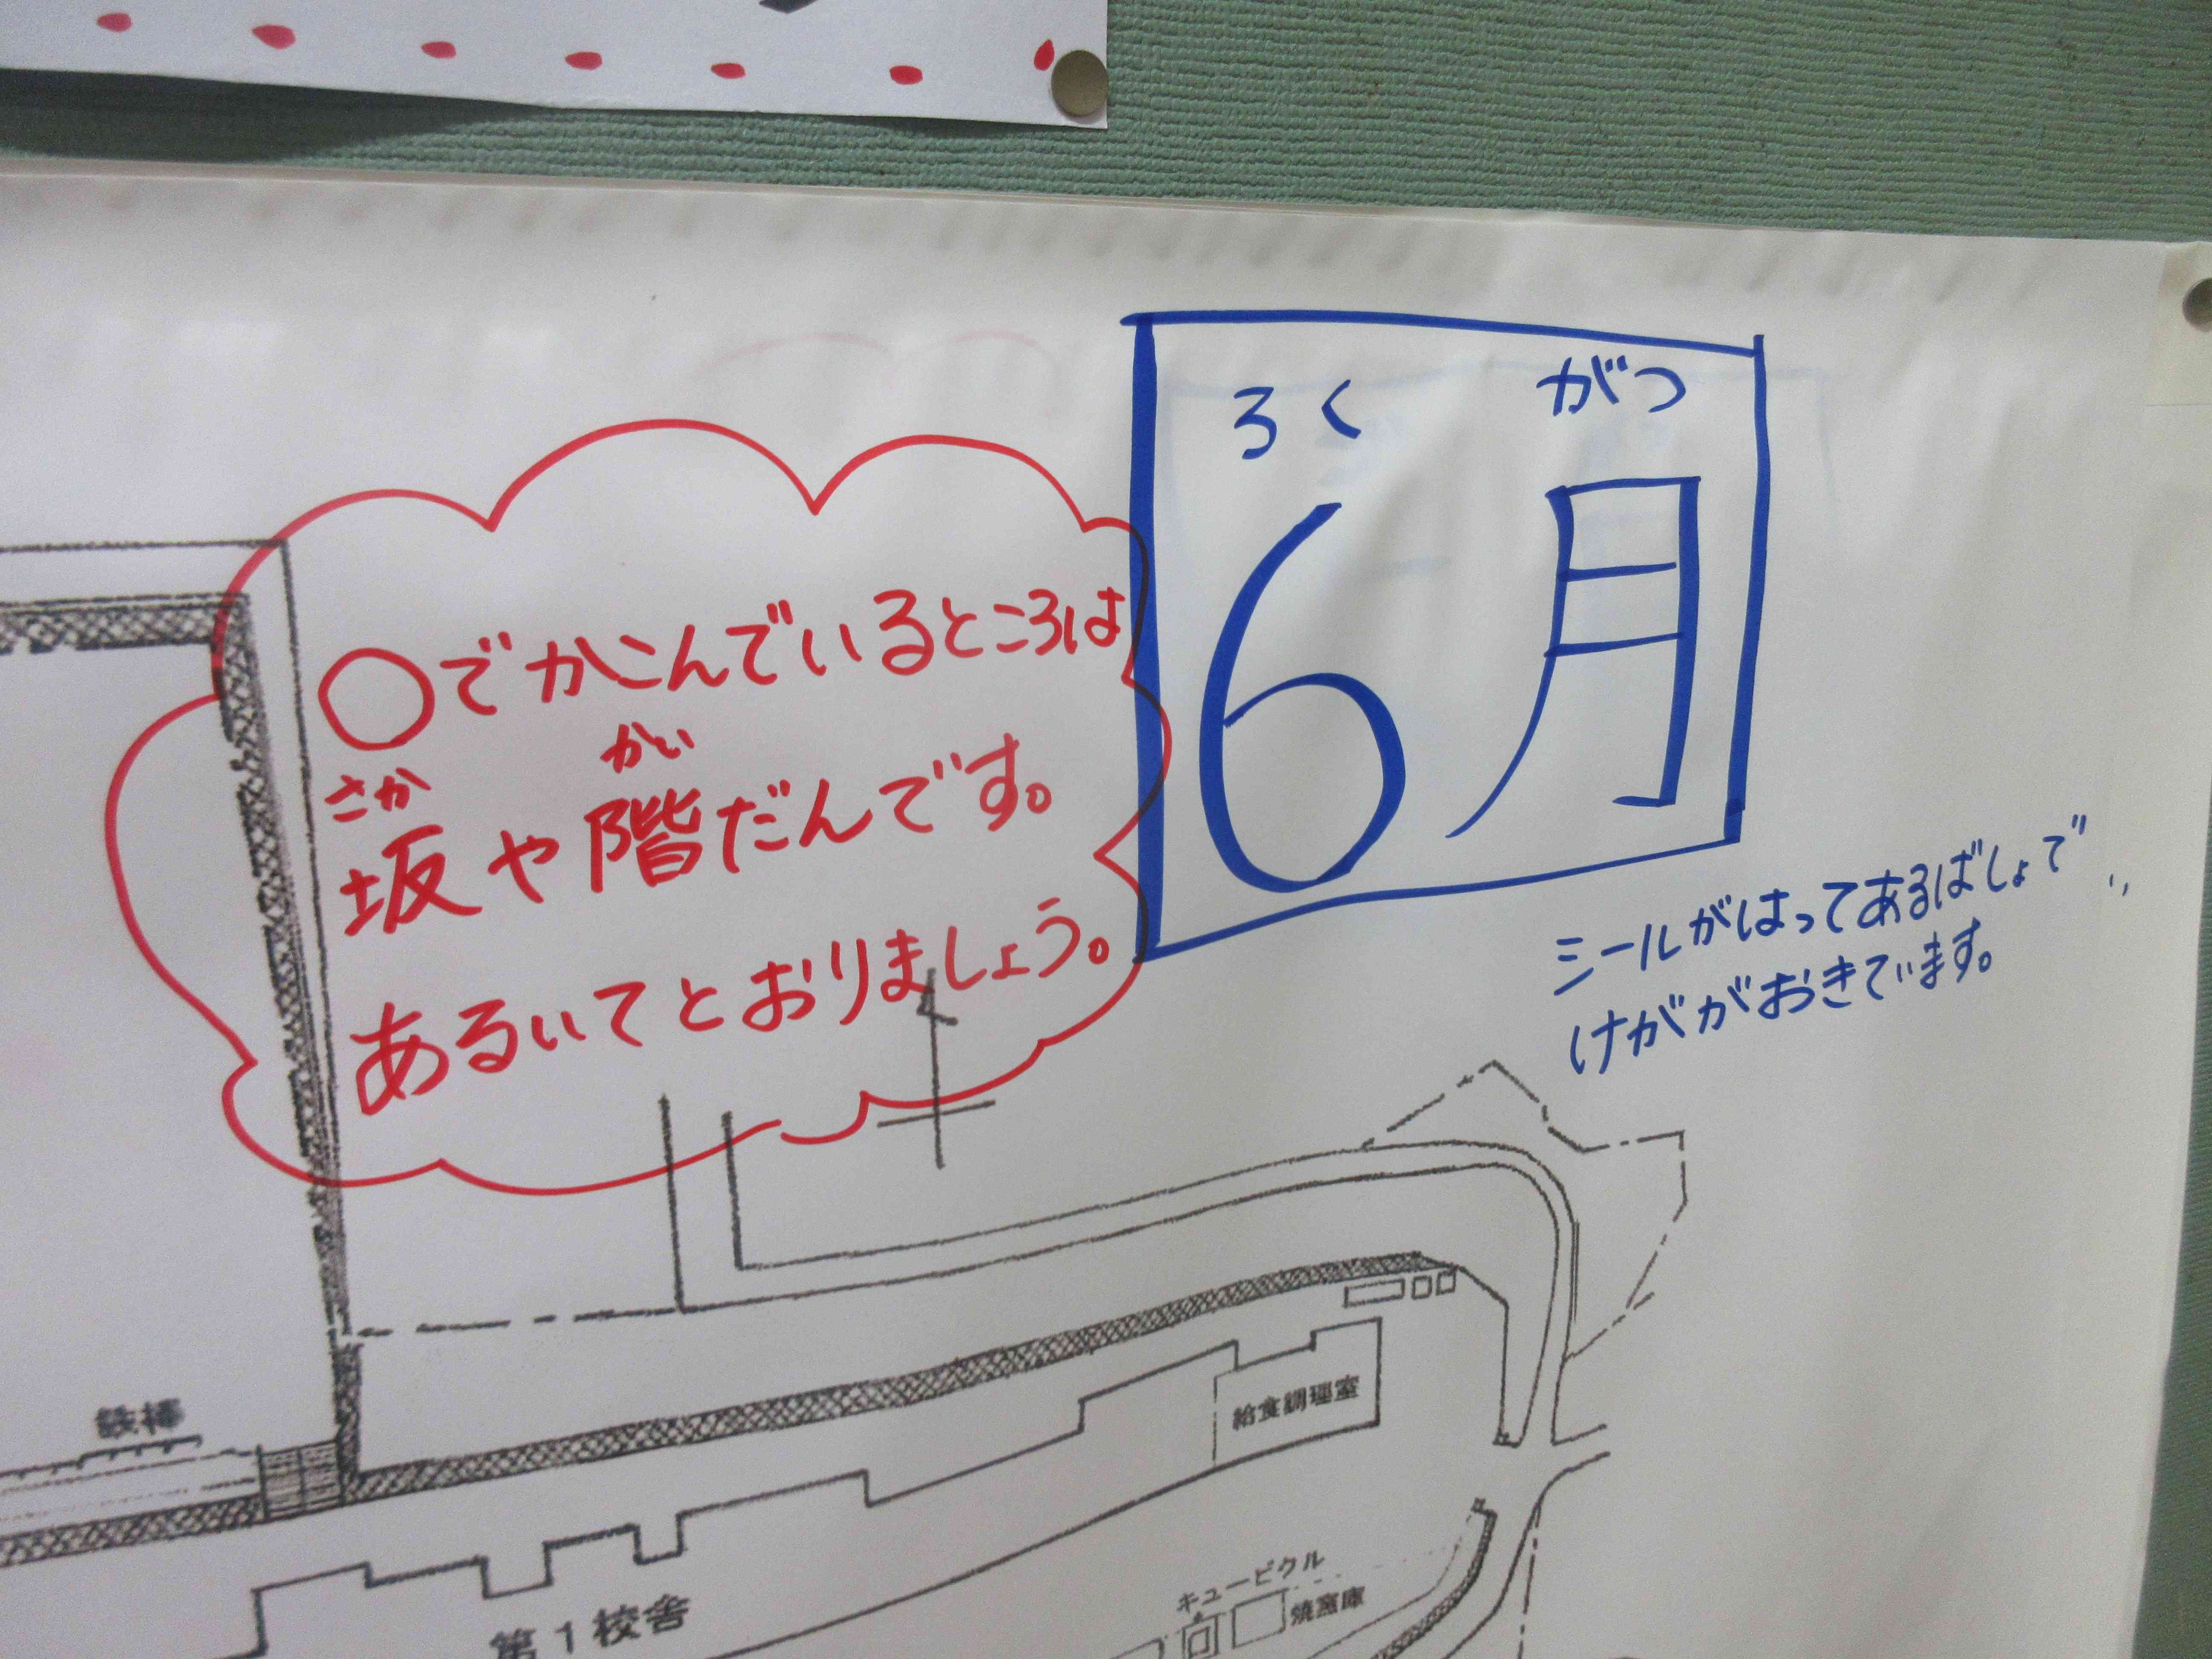 ろくがつ
6月
○でかこんでいるところは
さか かい
坂や階だんです。
あるいてとおりましょう。
シールがはってあるばしょで、
けががおきています。
鉄棒
給食調理室
キュービクル
焼窯庫
第1校舎